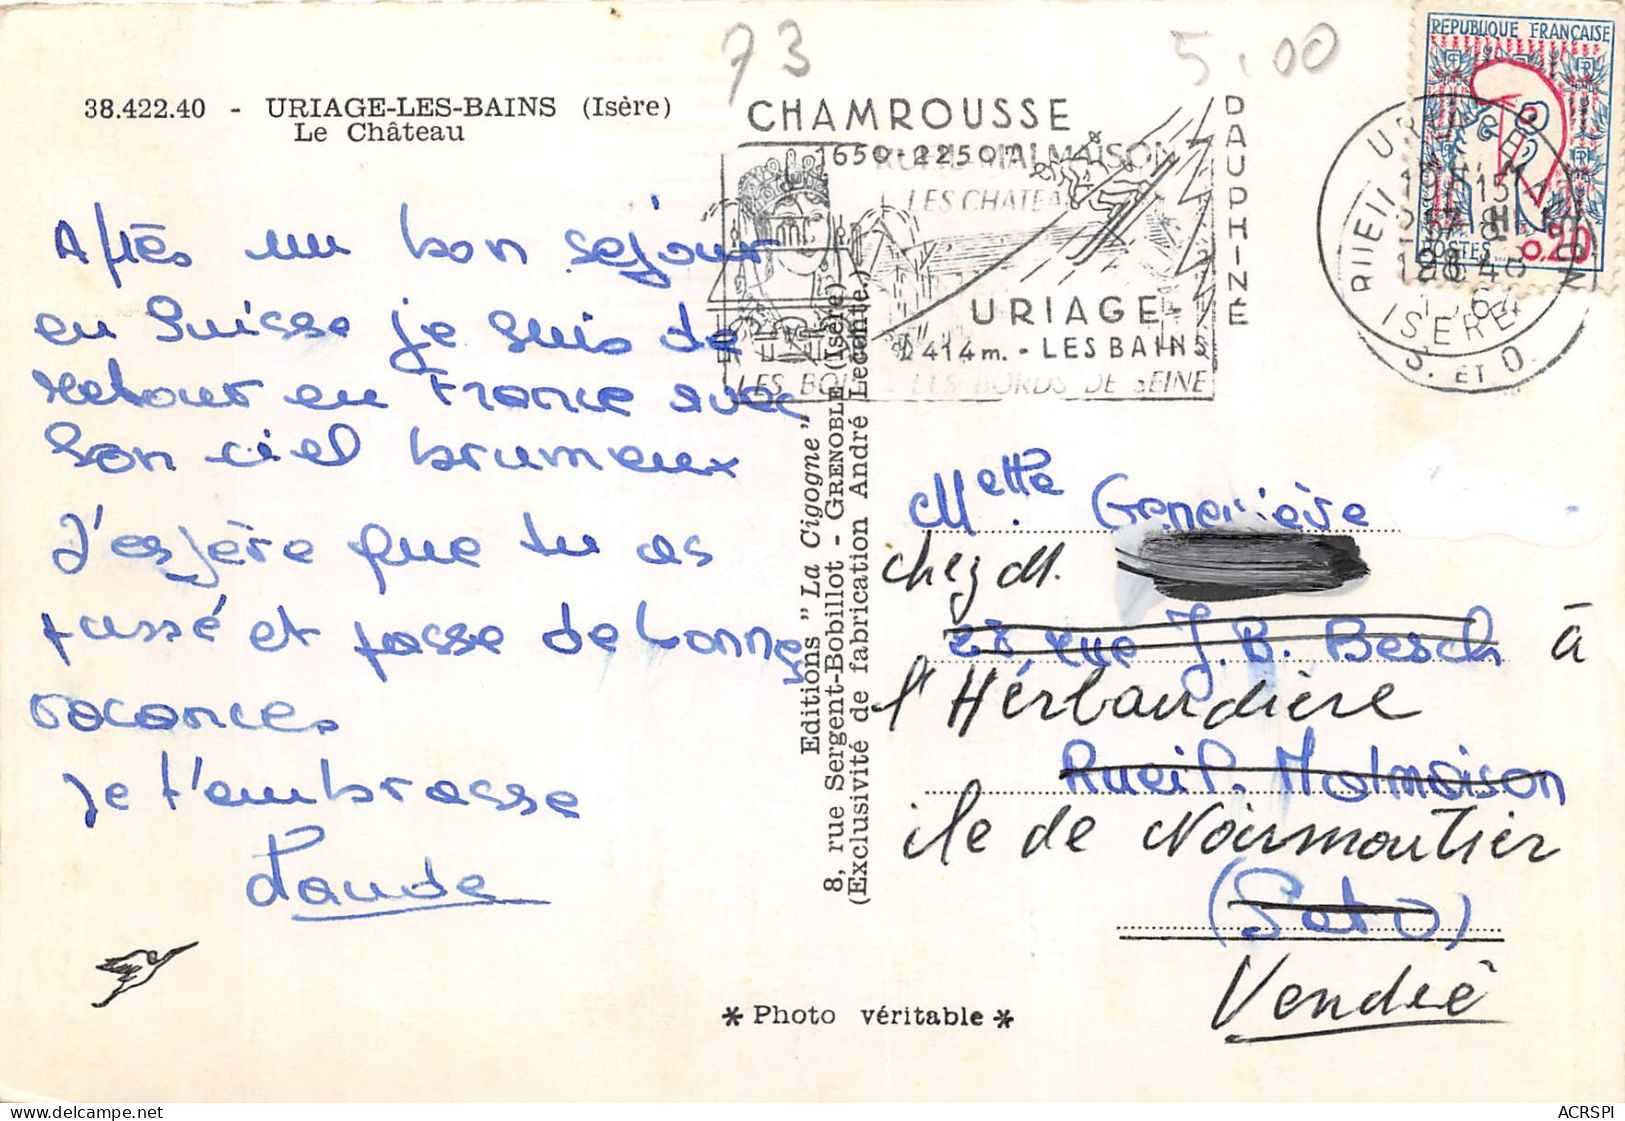 73
5.00
38.422.40 - URIAGE-LES-BAINS (Isère)
Le Château
CHAMROUSSE
1650-2250m
RUEIL MALMAISON
LES CHATEA
DAUPHINE
URIAGE-
414m. - LES BAINS
LES BOI LES BORDS DE SEINE
REPUBLIQUE FRANÇAISE
POSTES
0,20
ISERE
S. ET O.
Après un bon sejour
en Suisse je suis de
retour en France avec
son ciel brumeux
J'espère que tu as
passé et passe de bonnes
vacances
Je t'embrasse
Editions "La Cigogne"
8, rue Sergent-Bobillot - GRENOBLE (Isère)
(Exclusivité de fabrication André Leconte.)
Melle. Geneviève
chez M.
28 rue J.B. Besch à
l'Hérbaudière
Rueil. Malmaison
île de Noirmoutier
(S et O)
Vendée
* Photo véritable *
ACRSPI